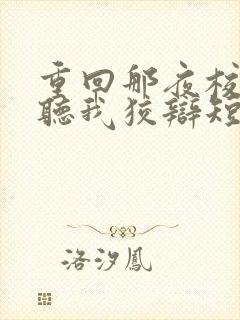 重回那夜校
聽我狡辯短
洛汐鳳